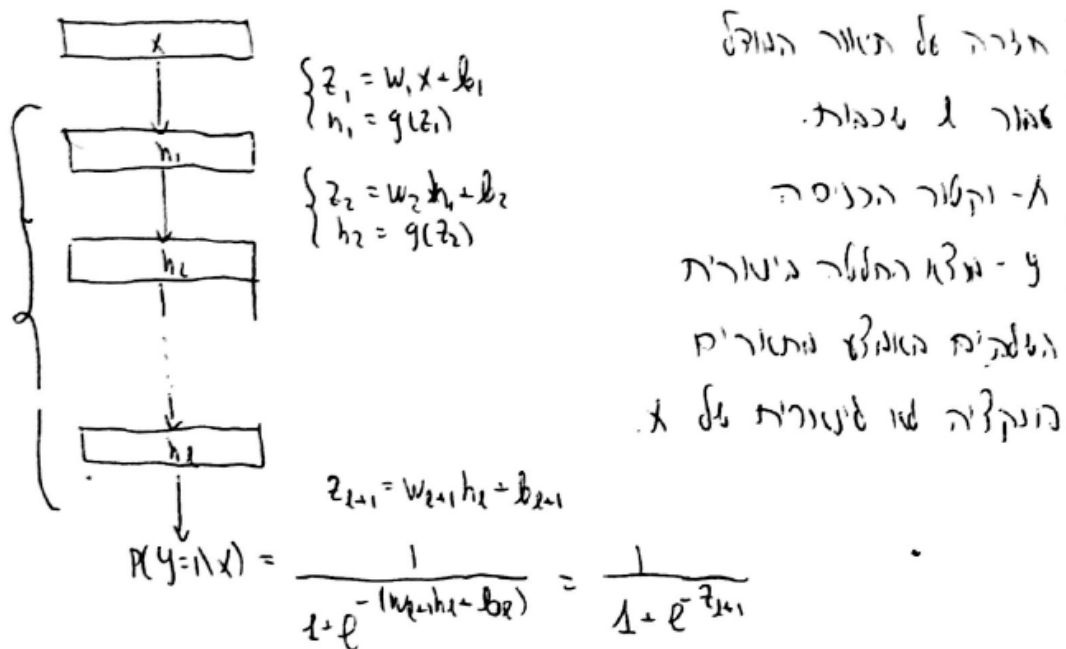 חזרה על תיאור המודל
עבור l שכבות.
x - וקטור הכניסה
y - מוצא החלטה בינארית
השלבים באמצע מתארים
פונקציה לא לינארית של x.
x
z₁ = w₁x + b₁
h₁ = g(z₁)
h₁
z₂ = w₂h₁ + b₂
h₂ = g(z₂)
h₂
h_l
z_{l+1} = w_{l+1}h_l + b_{l+1}
P(y=1|x) = 1 / (1 + e^{-(w_{l+1}h_l + b_l)}) = 1 / (1 + e^{-z_{l+1}})